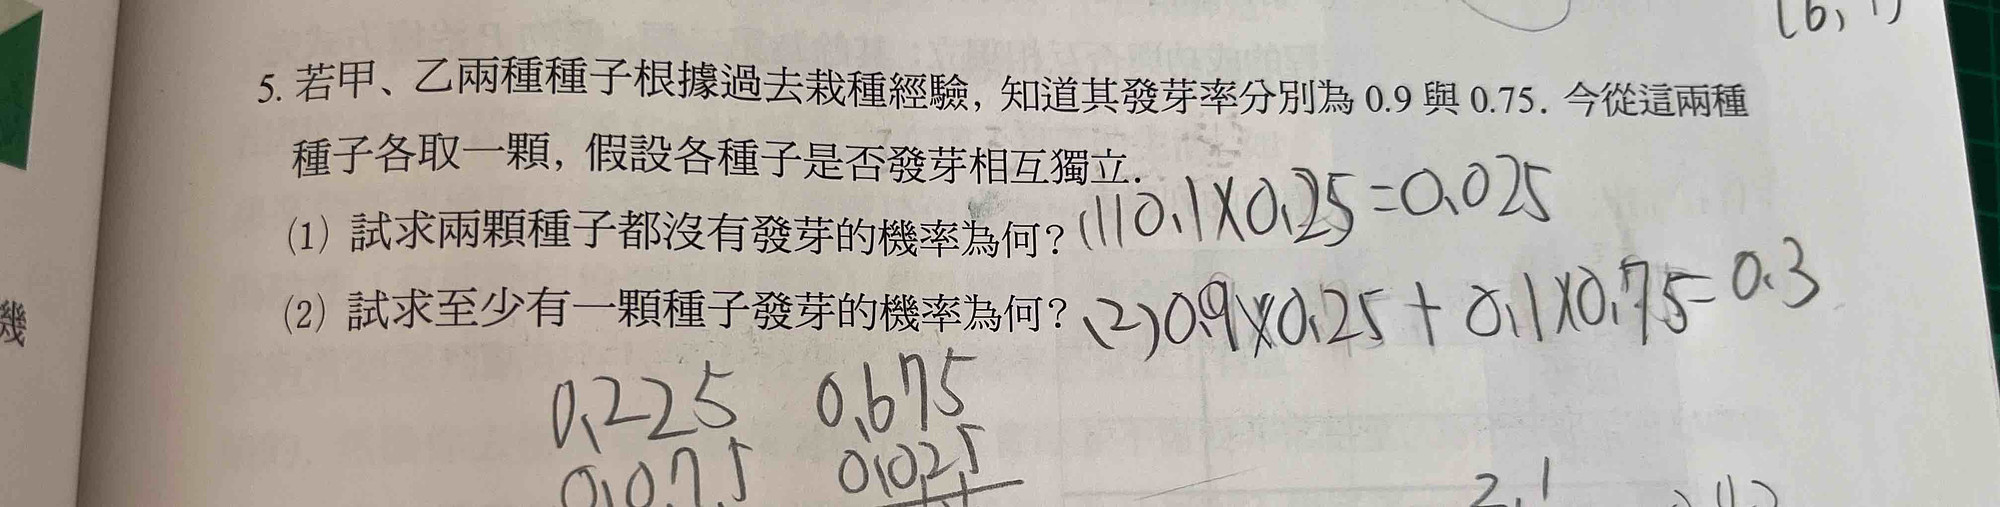 (6, 1)
5. 若甲、乙兩種種子根據過去栽種經驗, 知道其發芽率分別為 0.9 與 0.75. 今從這兩種
種子各取一顆, 假設各種子是否發芽相互獨立.
(1) 試求兩顆種子都沒有發芽的機率為何? (1) 0.1×0.25=0.025
(2) 試求至少有一顆種子發芽的機率為何? (2) 0.9×0.25+0.1×0.75=0.3
機
0.225 0.675
0.075 0.025